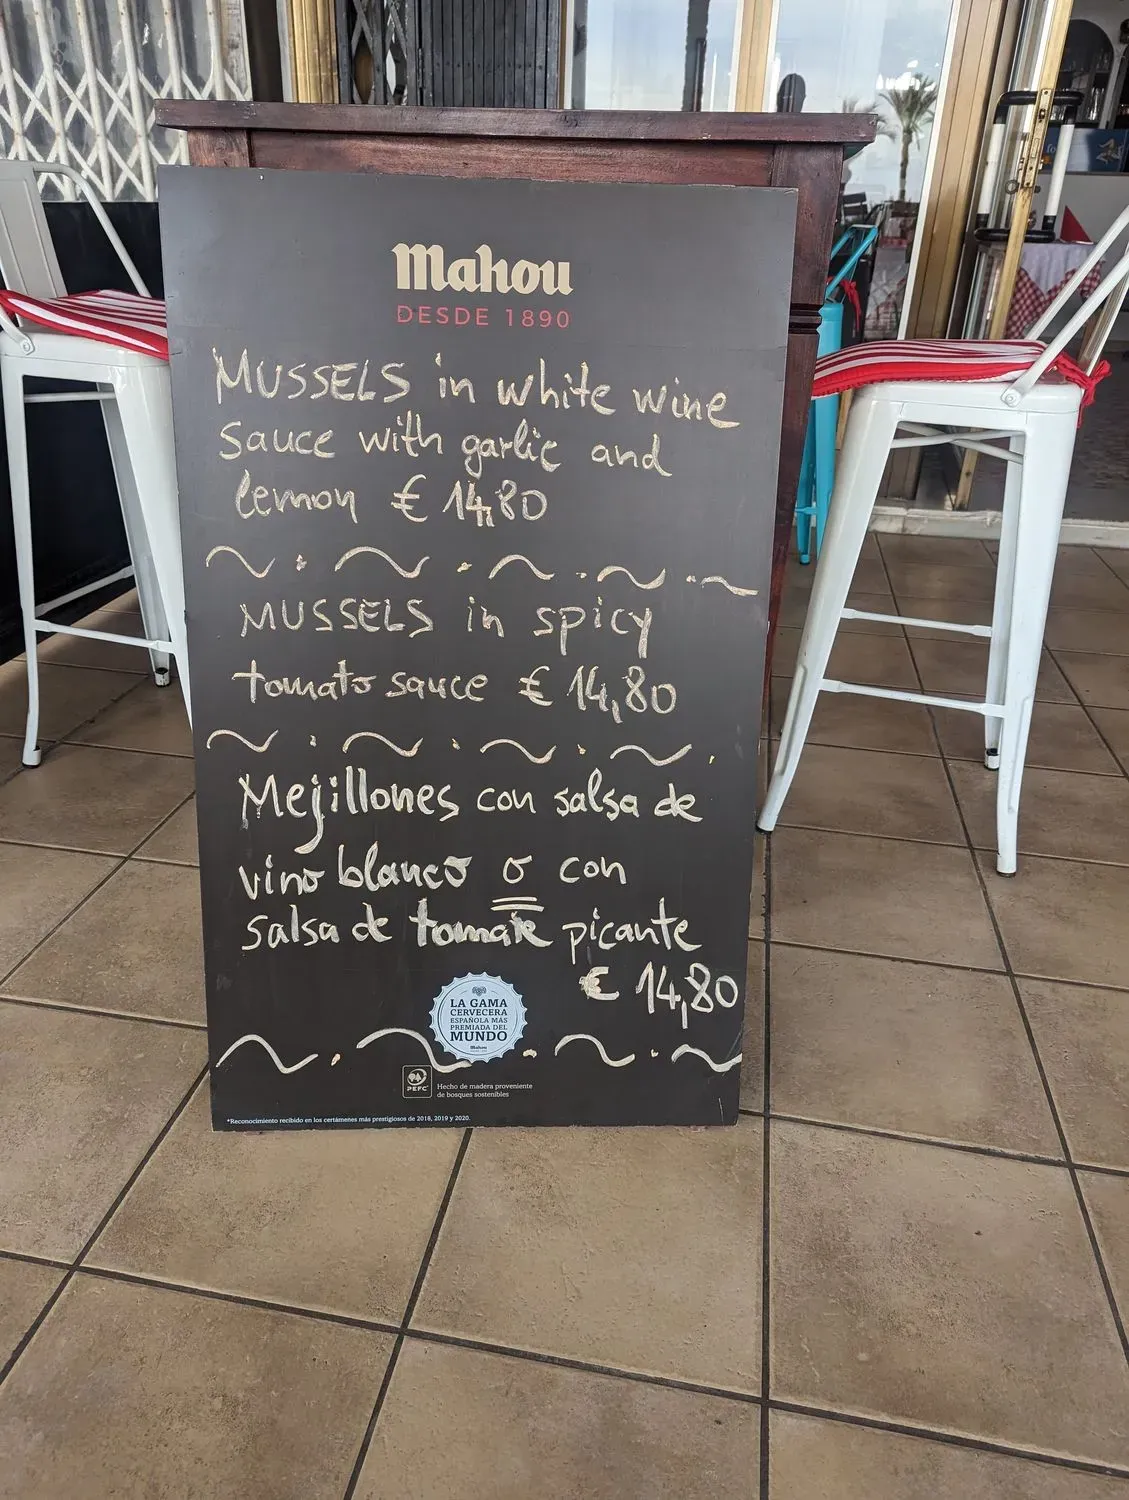 Mahou
DESDE 1890
MUSSELS in white wine
sauce with garlic and
lemon € 14,80
MUSSELS in spicy
tomato sauce € 14,80
Mejillones con salsa de
vino blanco o con
salsa de tomate picante
€ 14,80
LA GAMA
CERVECERA
ESPAÑOLA MÁS
PREMIADA DEL
MUNDO
Mahou
PEFC
Hecho de madera proveniente
de bosques sostenibles
*Reconocimiento recibido en los certámenes más prestigiosos de 2018, 2019 y 2020.